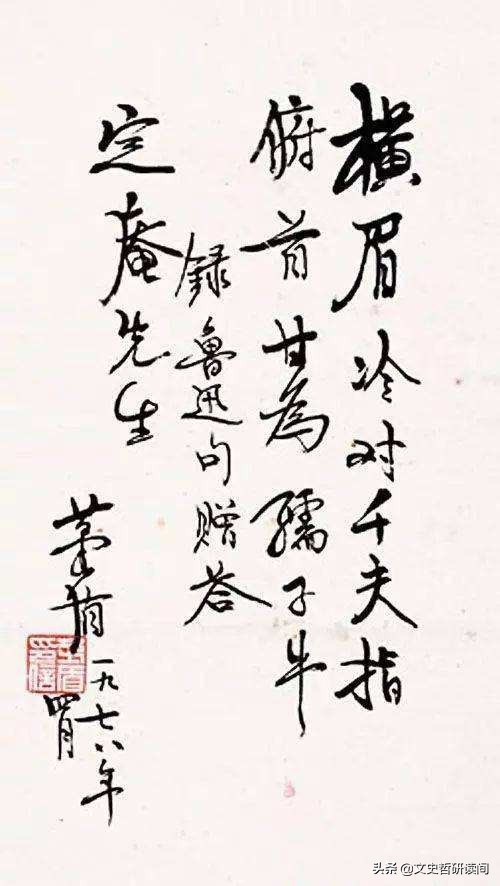 横眉冷对千夫指
俯首甘為孺子牛
録魯迅句贈荅
定菴先生
茅盾一九七八年
四月
头条 @文史哲研读间